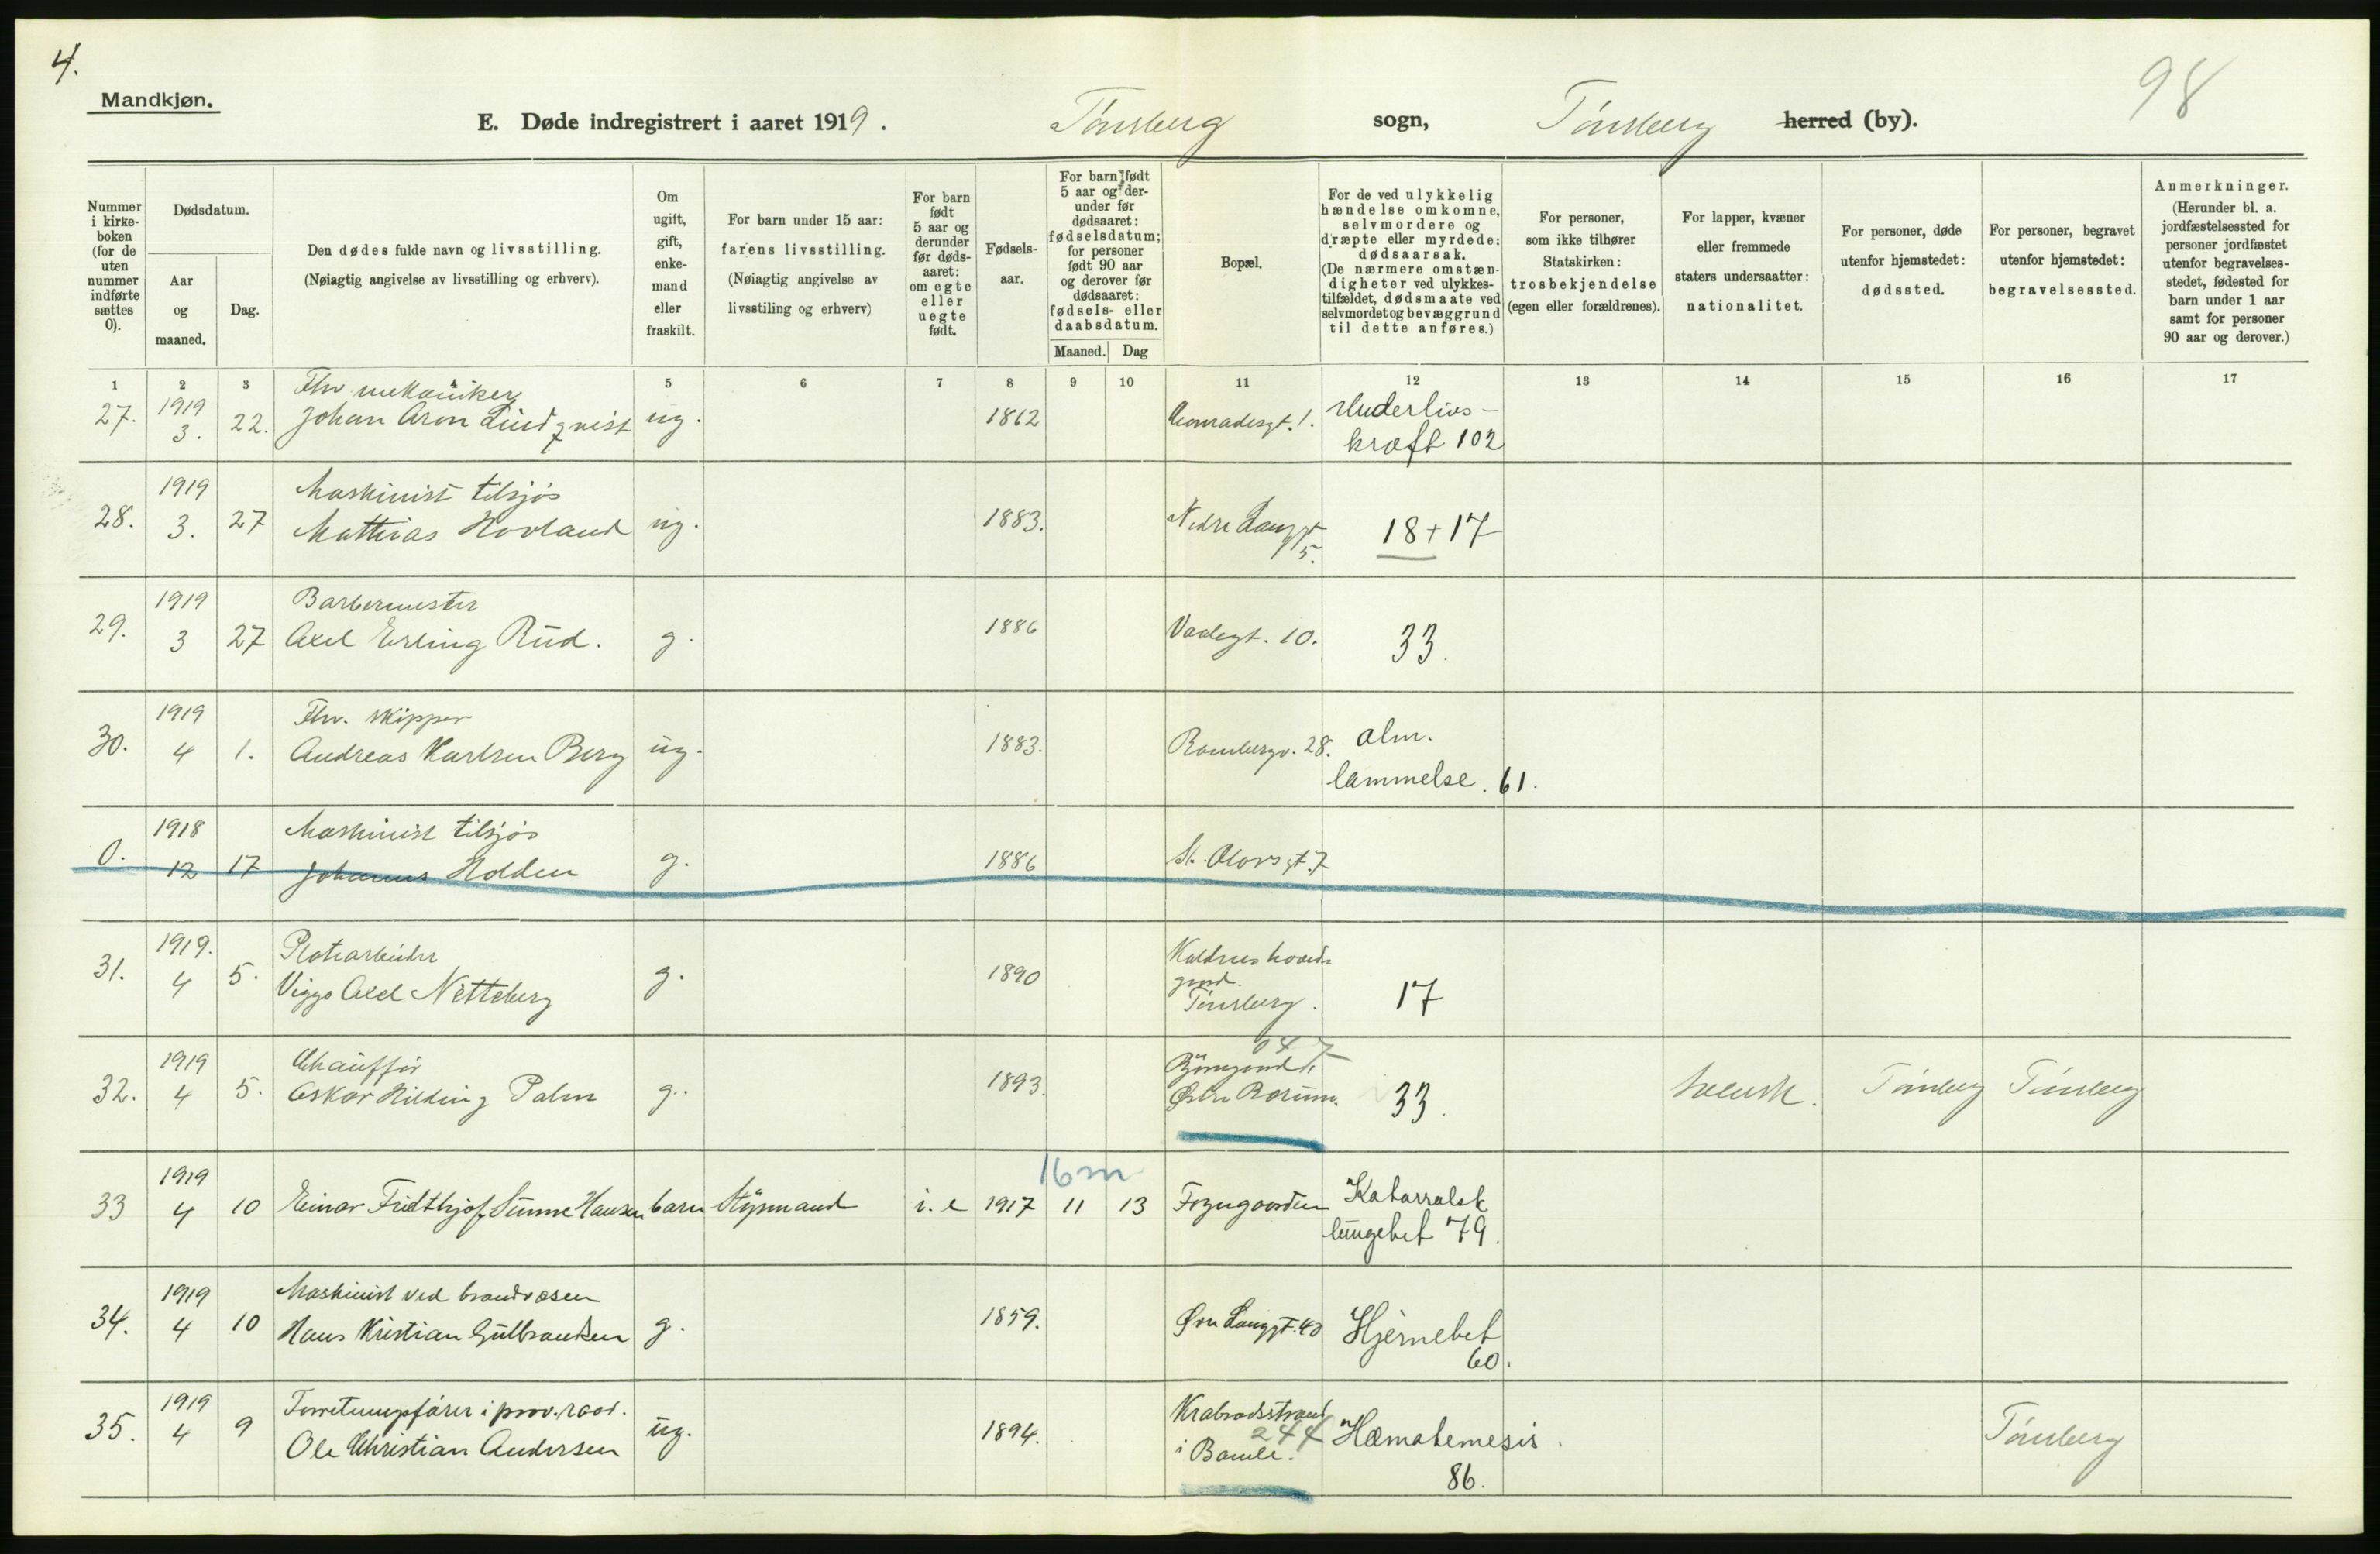 4.
98
Mandkjøn.
E. Døde indregistrert i aaret 1919. Tønsberg sogn, Tønsberg herred (by).
Nummer i kirke-boken (for de uten nummer indførte sættes 0).
Dødsdatum.
Aar og maaned.
Dag.
Den dødes fulde navn og livsstilling.
(Nøiagtig angivelse av livsstilling og erhverv).
Om ugift, gift, enke-mand eller fraskilt.
For barn under 15 aar:
farens livsstilling.
(Nøiagtig angivelse av livsstiling og erhverv)
For barn født 5 aar og derunder før døds-aaret: om egte eller uegte født.
Fødsels-aar.
For barn født 5 aar og der-under før dødsaaret: fødselsdatum; for personer født 90 aar og derover før dødsaaret: fødsels- eller daabsdatum.
Maaned. Dag
Bopæl.
For de ved ulykkelig hændelse omkomne, selvmordere og dræpte eller myrdede: dødsaarsak.
(De nærmere omstæn-digheter ved ulykkes-tilfældet, dødsmaate ved selvmordet og bevæggrund til dette anføres.)
For personer, som ikke tilhører Statskirken: trosbekjendelse (egen eller forældrenes).
For lapper, kvæner eller fremmede staters undersaatter: nationalitet.
For personer, døde utenfor hjemstedet: dødssted.
For personer, begravet utenfor hjemstedet: begravelsessted.
Anmerkninger.
(Herunder bl. a. jordfæstelsessted for personer jordfæstet utenfor begravelses-stedet, fødested for barn under 1 aar samt for personer 90 aar og derover.)
1 2 3 5 6 7 8 9 10 11 12 13 14 15 16 17
Fhv mekaniker
27. 1919 3. 22. Johan Aron Lindqvist ug. 1862 Conradesgt. 1. Underlivs-
kræft 102
1919 Maskinist tilsjøs
28. 3. 27 Mathias Hovland ug. 1883. Nedre Langgt 5. 18+17
1919 Barbermester
29. 3 27 Axel Erling Rud. g. 1886 Vaalegt. 10. 33.
1919 Fhv. skipper
30. 4 1. Andreas Karlsen Berg ug. 1883. Rambergv. 28. alm.
lammelse. 61.
1918 Maskinist tilsjøs
0. 12 17 Johannes Holden g. 1886 St. Olavsgt. 7
1919. Platearbeider
31. 4 5. Viggo Axel Netteberg g. 1890 Kaldnes hoved-
gaard.
Tønsberg. 17
1919 Chauffør
32. 4 5. Oskar Hilding Palm g. 1893. Østre Bærum. 33. svensk. Tønsberg Tønsberg
16 m
33 1919 4 10 Einar Fridthjof Sunne Hansen barn Styrmand i. e 1917 11 13 Frøgngaarden Katarralsk
lungebet 79.
1919 Maskinist ved brandvæsen
34. 4 10 Hans Kristian Gulbrandsen g. 1859. Øvre Langgt. 40 Hjernebet
60.
1919 Forretningsfører i prov.raad.
35. 4 9 Ole Christian Andersen ug. 1894. Krabrodsstrand
244
i Bamle. Hæmatemesis. Tønsberg
86.